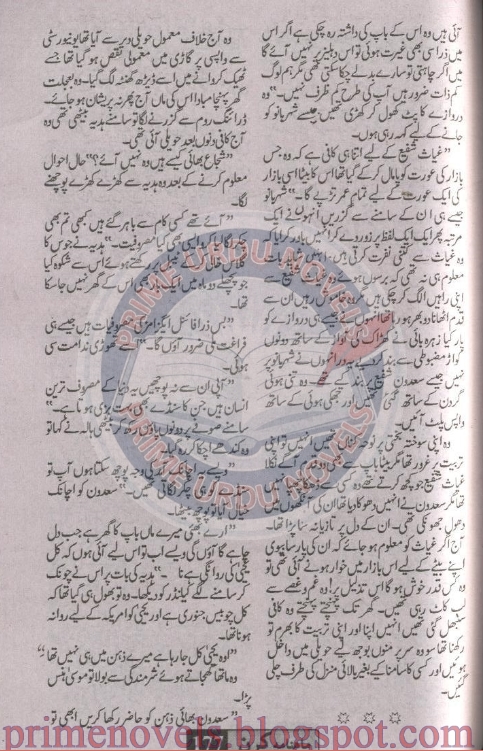 آئی ہیں وہ اس کے باپ کی داشتہ رہ چکی ہے اگر اس
میں ذرا سی بھی غیرت ہوئی تو اس دہلیز پر نہیں آئے گا
میں اگر چاہتی تو سارے بدلے چکا سکتی تھی مگر ہم لوگ
کم ذات ضرور ہیں آپ کی طرح کم ظرف نہیں۔‘‘ وہ
دروازے کا پٹ کھول کر کھڑی تھیں جیسے شہر بانو کو
جانے کے لیے کہہ رہی ہوں۔
’’غیاث شفیع کے لیے اتنا ہی کافی ہے کہ وہ جس
بازار کی عورت کو پامال کرنے کیا تھا اس کا بیٹا اسی بازار
کی ایک عورت کے لیے تمام عمر تڑپے گا۔‘‘ شہر بانو
جیسے ہی ان کے سامنے سے گزریں انہوں نے ایک
مرتبہ پھر ایک ایک لفظ پر زور دے کر انہیں باور کرایا کہ
وہ غیاث سے کتنی نفرت کرتی ہیں۔
معلوم ہی نہ تھی کہ برسوں
اپنی راہیں الگ کر چکی ہیں وہ خاموش رہیں ان سے
قدم اٹھانا دوبھر ہو رہا تھا انہوں نے جیسے ہی دروازے کو
پار کیا زہرہ بائی نے کھڑاک کی آواز کے ساتھ دونوں
کواڑ مضبوطی سے بند کیے یہ در انہوں نے شہر بانو پر
نہیں جیسے سعدون شفیع پر بند کیے تھے وہ تنی ہوئی
گردن کے ساتھ گئی تھیں اور جھکی ہوئی کے ساتھ
واپس پلٹ آئیں۔
وہ اپنی سوختہ بختی پر نوحہ کناں تھیں انہیں تو اپنی
تربیت پر غرور تھا مگر بیٹا باپ سے بھی دو قدم آگے نکلا
غیاث شفیع جو کچھ کرتے تھے وہ کسی سے
تھا مگر سعدون نے انہیں دھوکا دیا تھا ان کی آنکھوں میں
دھول جھونکی تھی۔ ان کے دل پر تازیانہ سا پڑا تھا۔
آج اگر غیاث کو معلوم ہو جائے کہ ان کی پارسا بیوی
اپنے بیٹے کے لیے اس بازار میں خوار ہونے آئی تھی تو
وہ کس قدر خوش ہو گا اس تذلیل پر! وہ غم و غصے سے
لب کاٹ رہی تھیں۔ گھر تک پہنچتے پہنچتے وہ کافی
سنبھل گئی تھیں انہیں اپنا اور اپنی تربیت کا بھرم تو
رکھنا تھا سو وہ سر پر منوں بوجھ لیے حویلی میں داخل
ہوئیں اور کسی کا سامنا کیے بغیر بالائی منزل کی طرف چلی
گئیں۔
☆ ☆ ☆ ☆
وہ آج خلاف معمول حویلی دیر سے آیا تھا یونیورسٹی
سے واپسی پر گاڑی میں معمولی نقص ہو گیا تھا جسے
ٹھیک کروانے میں اسے ڈیڑھ گھنٹہ لگ گیا۔ وہ بعجلت
گھر پہنچا مبادا اس کی ماں آج پھر نہ پریشان ہو جائے۔
ڈرائنگ روم سے گزرنے لگا تو سامنے ہدیہ بیٹھی تھی وہ
آج کافی دنوں بعد حویلی آئی تھی۔
’’شجاع بھائی کیسے ہیں وہ نہیں آئے؟‘‘ حال احوال
معلوم کرنے کے بعد وہ ہدیہ سے کھڑے کھڑے پوچھنے
لگا۔
’’آئے تھے کسی کام سے باہر گئے ہیں کبھی تم بھی
چکر لگا لیا کرو ایسی بھی کیا مصروفیت۔‘‘ ہدیہ نے جوس کا
گلاس خالی کر کے ٹیبل پر رکھتے ہوئے اس سے شکوہ کیا
جو پچھلے دو ماہ میں ایک بار بھی اس کے گھر نہیں جا سکا
تھا۔
’’بس ذرا فائنل ایگزامز کی مصروفیات ہیں جیسے ہی
فراغت ملی ضرور آؤں گا۔‘‘ اسے تھوڑی ندامت سی
ہوئی۔
’’آپی ان سے نہ پوچھیں یہ دنیا کے مصروف ترین
انسان ہیں جن کا سنڈے بھی بہت بزی ہوتا ہے۔‘‘
سامنے صوفے پر دونوں پاؤں رکھ کر بیٹھی ہالہ نے کہا تو
وہ کندھے اچکا کر رہ گیا۔
’’ویسے یہ اچانک آمد کی وجہ پوچھ سکتا ہوں آپ تو
سال میں کوئی چکر لگاتی تھیں۔‘‘ سعدون کو اچانک
خیال آیا تو پوچھ بیٹھا۔
’’ارے بھئی میرے ماں باپ کا گھر ہے جب دل
چاہے گا آؤں گی ویسے اب تو اس لیے آئی ہوں کہ کل
یحییٰ کی روانگی ہے نا۔‘‘ ہدیہ کی بات پر اس نے چونک
کر سامنے لگے کیلنڈر کو دیکھا۔ وہ تو بھول ہی گیا تھا کہ
کل چوبیس جنوری ہے اور یحییٰ کو امریکہ کے لیے روانہ
ہونا تھا۔
’’اوہ یحییٰ کل جا رہا ہے میرے ذہن میں ہی نہیں تھا۔‘‘
وہ ماتھا کھجاتے ہوئے شرمندگی سے بولا تو موسیٰ ہنس
پڑا۔
’’سعدون بھائی ذہن کو حاضر رکھا کریں ابھی تو۔
PRIME URDU NOVELS
PRIME URDU NOVELS
primenovels.blogspot.com
177